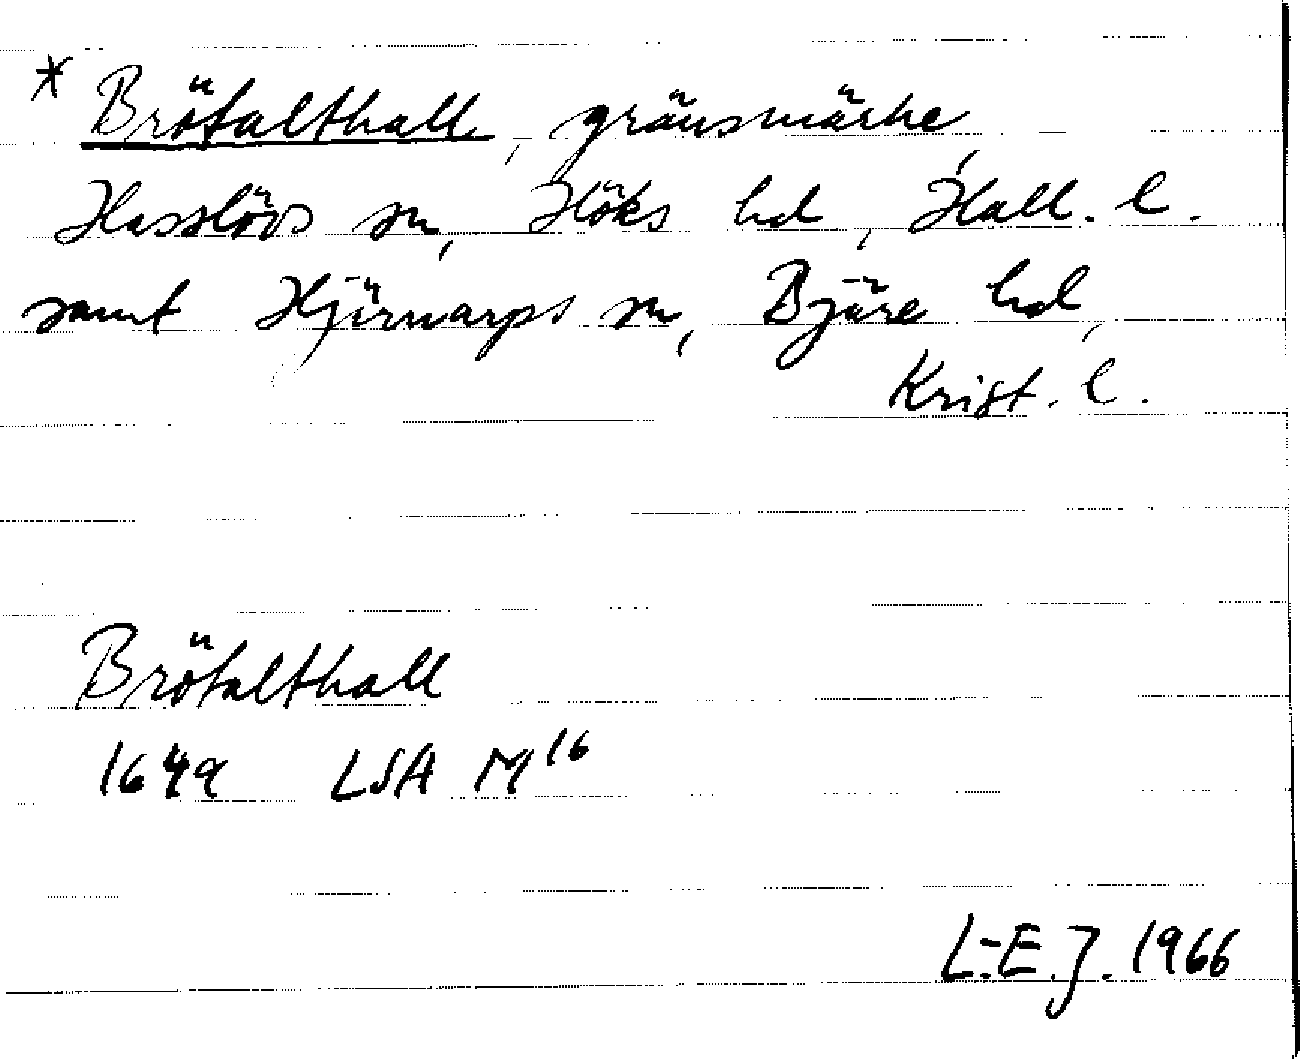 * Brötalthall, gränsmärke,
Hasslövs sn, Höks hd, Hall. l.
samt Hjärnarps sn, Bjäre hd,
Krist. l.
Brötalthall
1649 LSA M16
L-E.J. 1966